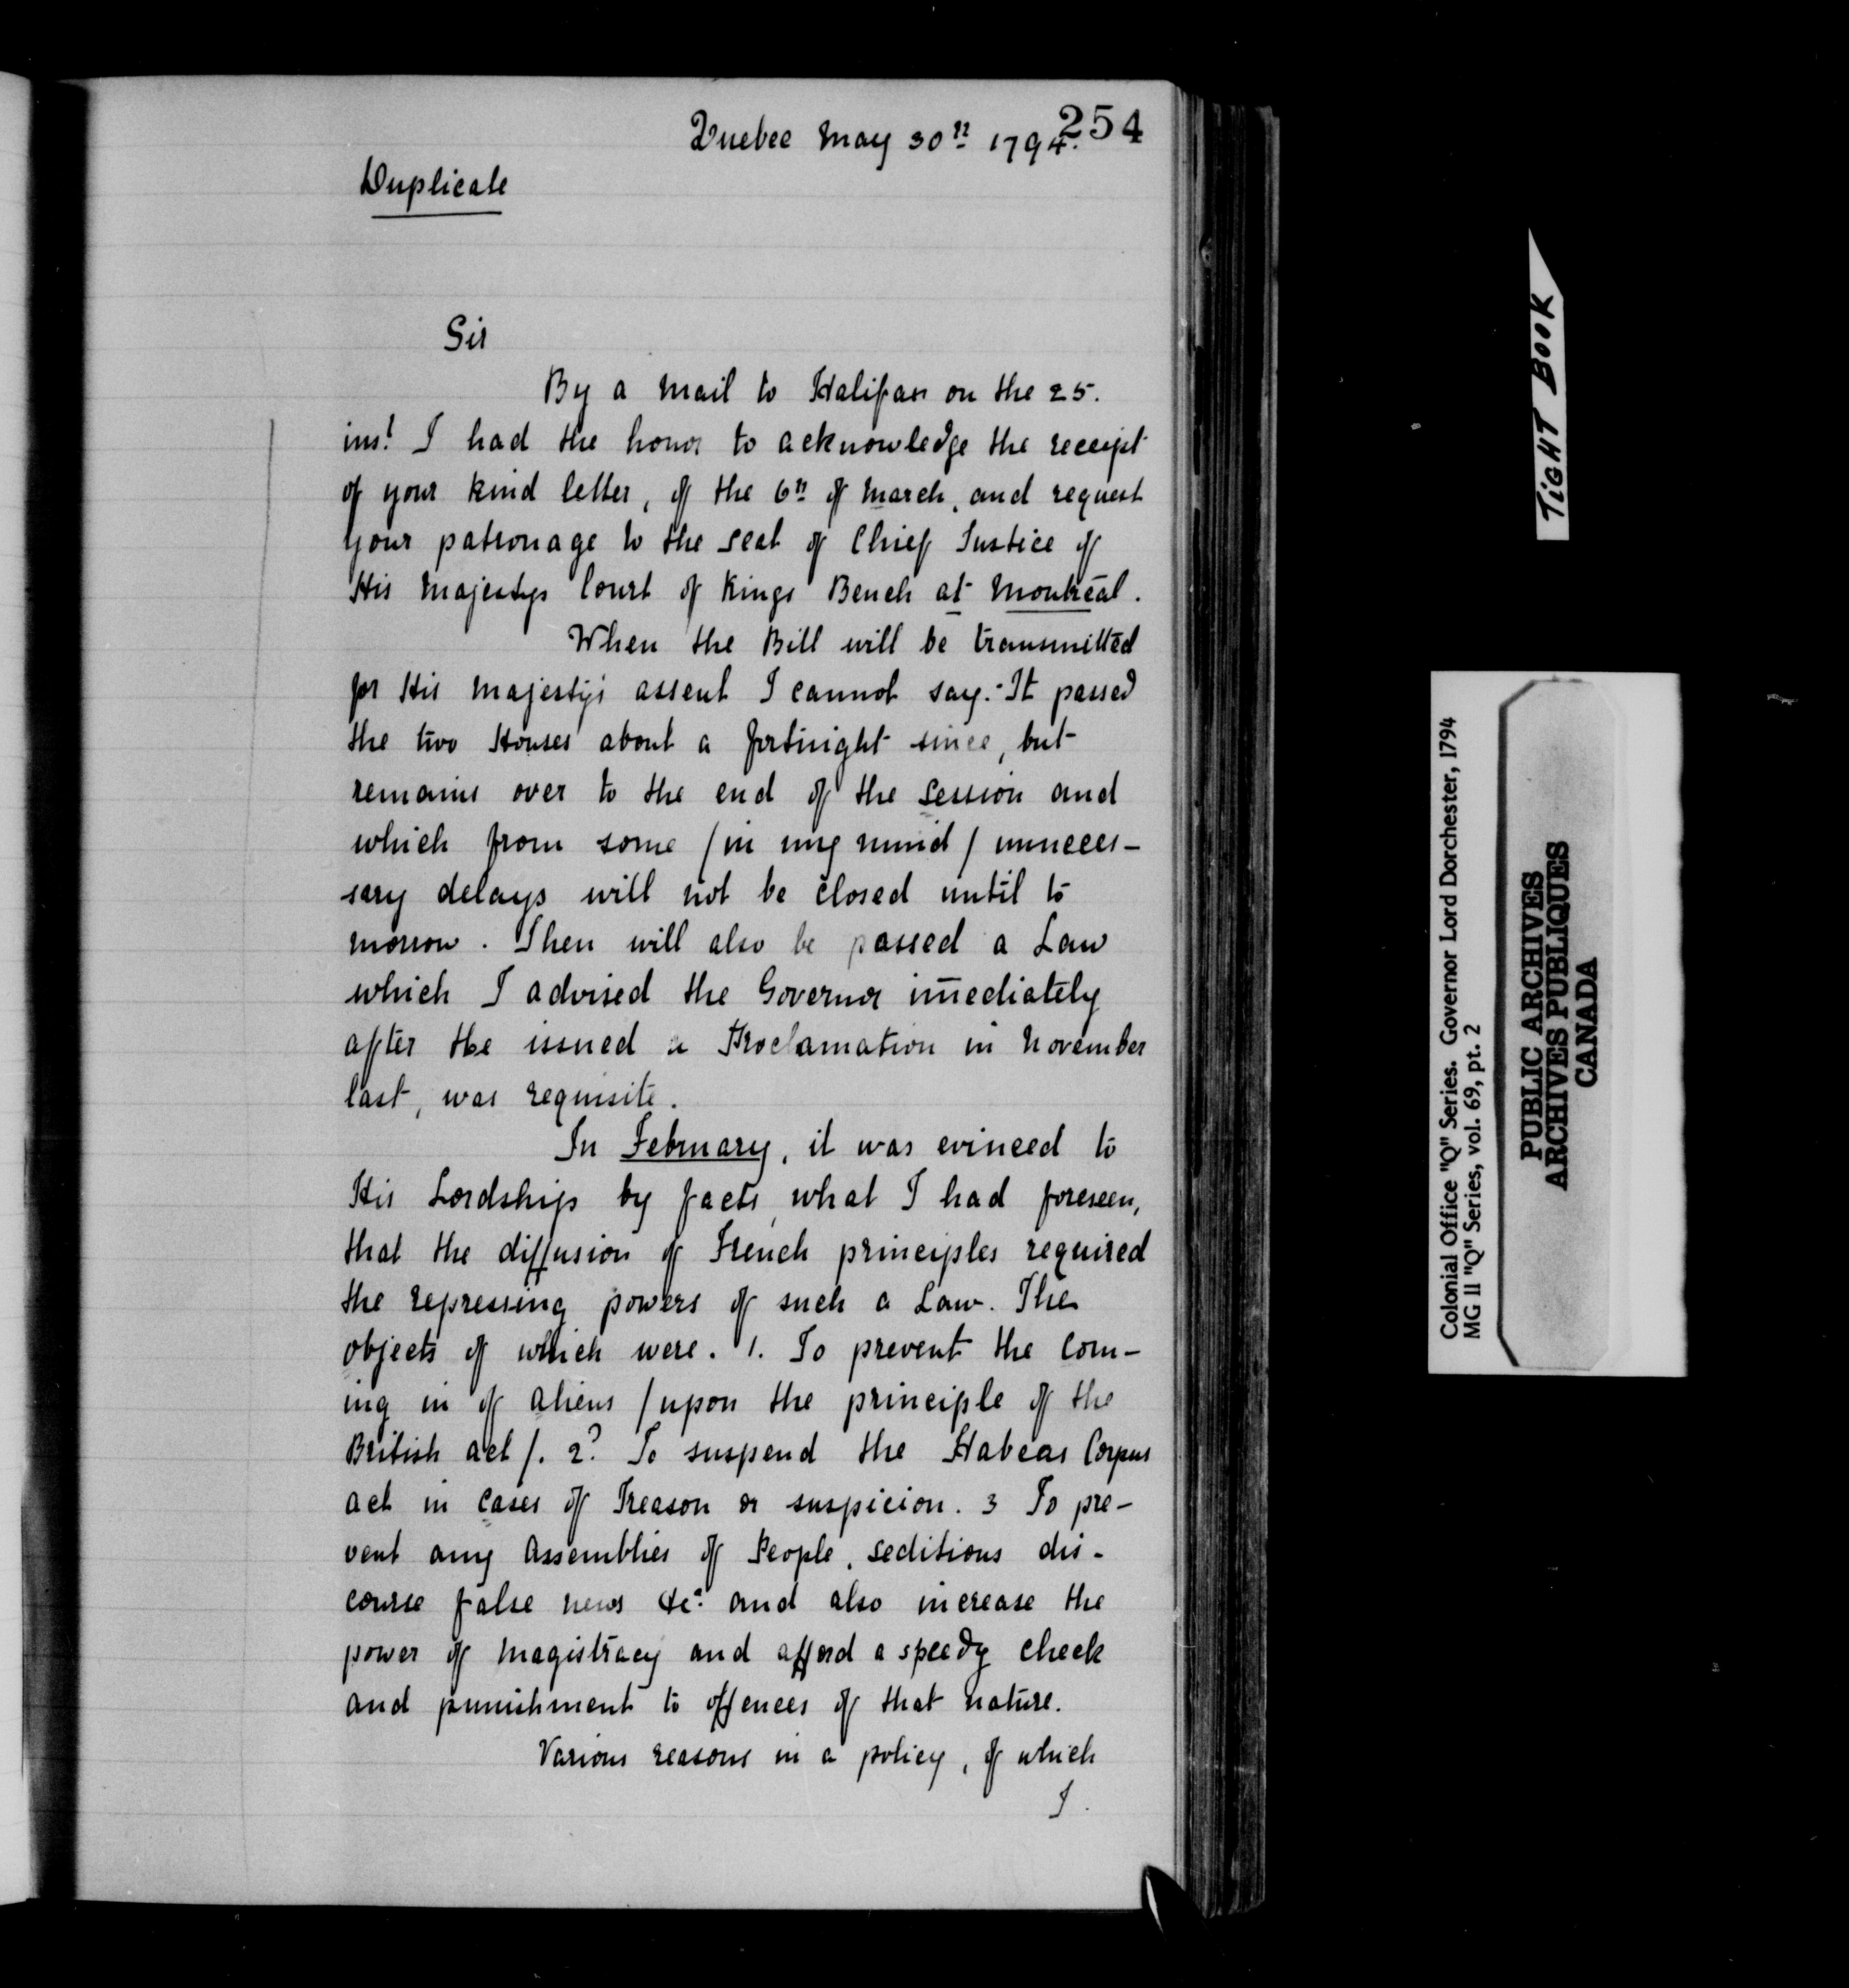 254
Quebec May 30th 1794.
Duplicate
Sir
By a mail to Halifax on the 25.
inst I had the honor to acknowledge the receipt
of your kind letter, of the 6th of March, and request
your patronage to the seat of Chief Justice of
His Majestys Court of Kings Bench at Montreal.
When the Bill will be transmitted
for His Majesty's assent I cannot say. It passed
the two Houses about a fortnight since, but
remains over to the end of the session and
which from some / in my mind / unneces-
sary delays will not be closed until to
morrow. Then will also be passed a Law
which I advised the Governor imediately
after He issued a Proclamation in November
last, was requisite.
In February, it was evinced to
His Lordship by facts, what I had foreseen,
that the diffusion of French principles required
the repressing powers of such a Law. The
objects of which were. 1. To prevent the com-
ing in of aliens / upon the principle of the
British act /. 2d To suspend the Habeas Corpus
act in cases of Treason or suspicion. 3 To pre-
vent any Assemblies of People, seditious dis-
course false news &ca and also increase the
power of magistracy and afford a speedy check
and punishment to offences of that nature.
Various reasons in a policy, of which
I.
TIGHT BOOK
Colonial Office "Q" Series. Governor Lord Dorchester, 1794
MG 11 "Q" Series, vol. 69, pt. 2
PUBLIC ARCHIVES
ARCHIVES PUBLIQUES
CANADA